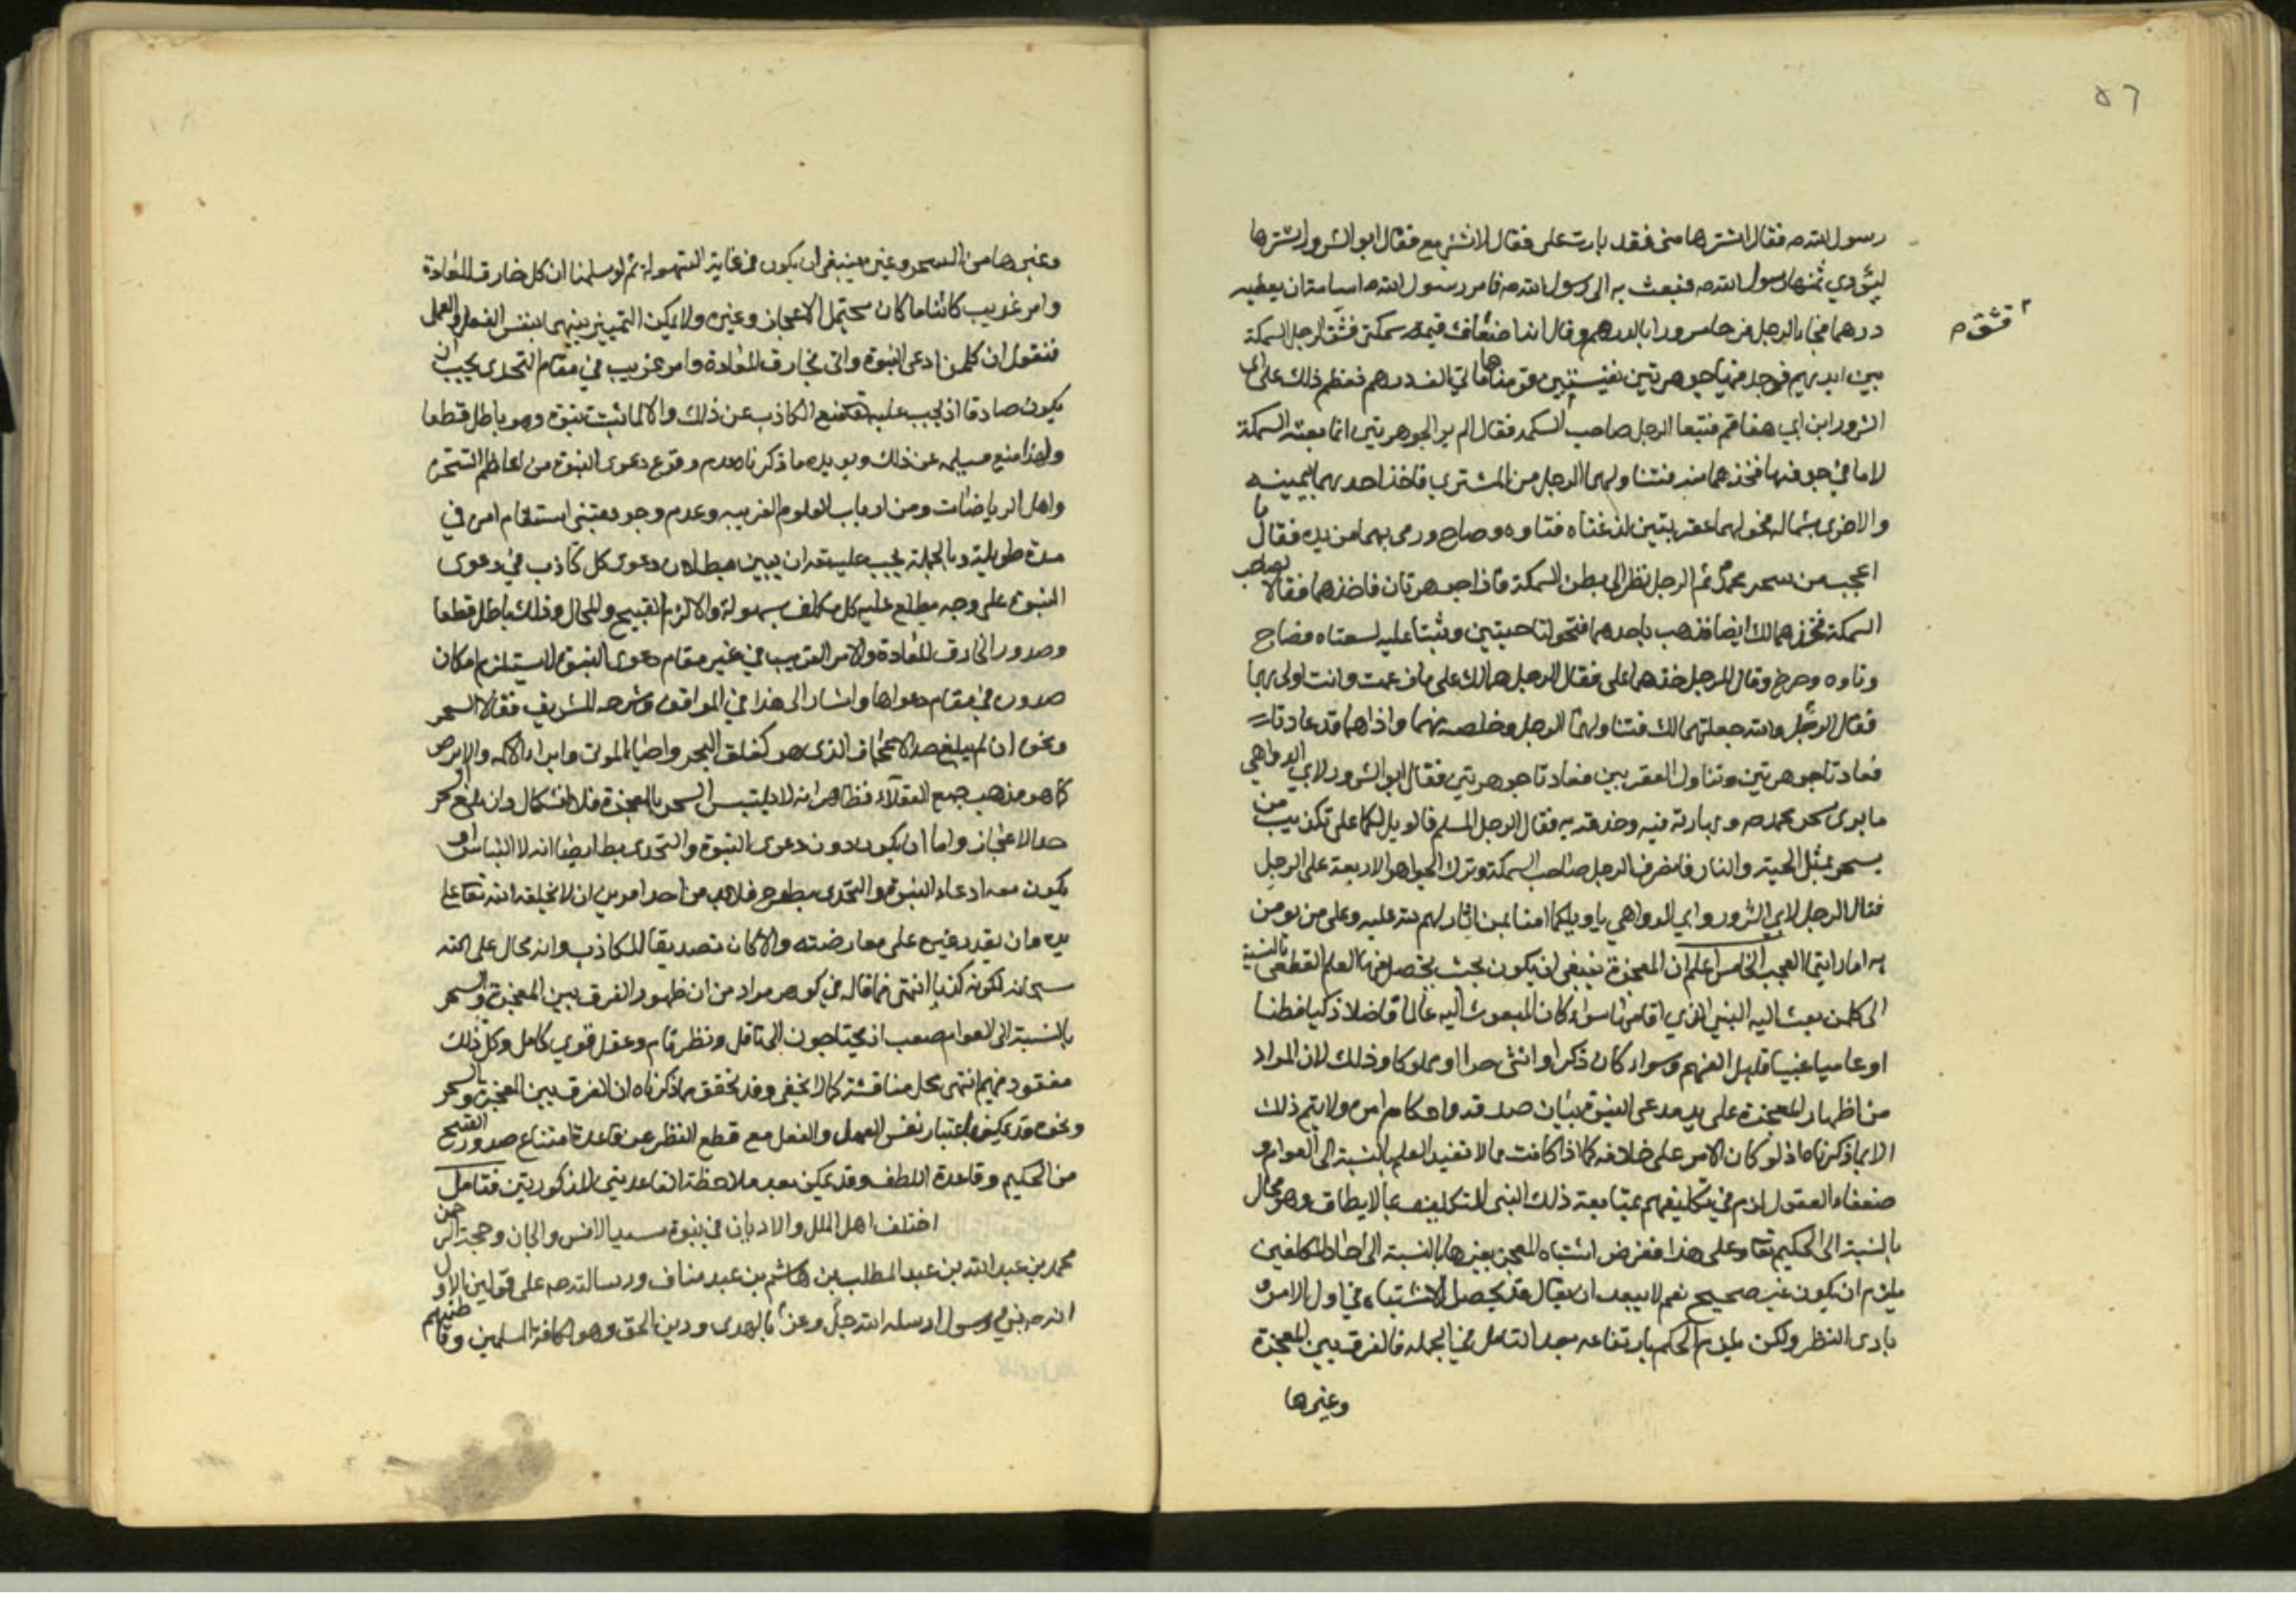 ٥٦
رسول الله ص فقال اشترها مني فقد بارت علي فقال الاشتريع فقال ابو الشرور اشترها
ليؤدي ثمنها رسول الله ص فبعث به الى رسول الله ص فامر رسول الله ص اسامة ان يعطيه
درهما فجاء الرجل فرحا مسرورا بالدرهم وقال انها اضعاف قيمة سمكتي فشق الرجل السمكة
قشق
بين ايديهم فوجد فيها جوهرتين نفيستين قومتا مأتي الف درهم فعظم ذلك على ابي
الشرور وابن ابي هفاقم فتبعا الرجل صاحب السمكة فقال الم ير الجوهرتين انما بعته السمكة
لا ما في جوفها فخذهما منه فتناولهما الرجل من المشتري فاخذ احديهما بيمينه
والاخرى بشماله فحولهما عقربتين لذغتاه فتاوه وصاح ورمى بهما من يده فقال ما
اعجب من سحر محمد ثم الرجل نظر الى بطن السمكة فاذا جوهرتان فاخذهما فقالا لصاحب
السمكة خذهما لك ايضا فذهب ياخذهما فتحولتا حيتين وثبتا عليه لسعتاه فصاح
وتاوه وصرخ وقال للرجل خذهما عني فقال الرجل هما لك على ما زعمت وانت اولى بهما
فقال الرجل والله جعلتهما لك فتناولهما الرجل وخلصه منهما واذا هما قد عادتا
فعادتا جوهرتين وتناول العقربين فعادتا جوهرتين فقال ابو الشرور لابي الدواهي
ما يرى سحر محمد ص ومهارته فيه وحذقه به فقال الرجل المسلم قالويل لكما على تكذيب من
يسحر بمثل الجنة والنار فانصرف الرجل صاحب السمكة وترك الجواهر الاربعة على الرجل
فقال الرجل لابي الشرور وابي الدواهي يا ويلكما امنا بمن اثار لهم الله عليه وعلى من يؤمن
به اما رايتما العجب الخامس اعلم ان المعجزة ينبغي ان يكون بحيث يحصل بها العلم القطعي بالنسبة
الى كل من بعث اليه النبي الذي اقامها سواء كان المبعوث اليه عالما فاضلا ذكيا فطنا
او عاميا غبيا قليل الفهم وسواء كان ذكرا او انثى حرا او مملوكا وذلك لان المراد
من اظهار المعجزة على يد مدعى النبوة بيان صدقه واحكام امره ولا يتم ذلك
الا بما ذكرناه اذ لو كان الامر على خلافه كما اذا كانت مما لا تفيد العلم بالنسبة الى العوام و
ضعفاء العقول لزم في تكليفهم بمتابعة ذلك النبي التكليف بما لا يطاق وهو محال
بالنسبة الى الحكيم تعا وعلى هذا ففرض اشتباه المعجز بغيرها بالنسبة الى احاد المكلفين
يلزم ان يكون غير صحيح نعم لا يبعد ان يقال قد يحصل الاشتباه في اول الامر و
بادى النظر ولكن يلزم الحكم بارتفاعه بعد التامل في الجملة فالفرق بين المعجزة
وغيرها
وغيرها من السحر وغيره ينبغي ان يكون في غاية السهولة ثم لو سلمنا ان كل خارق للعادة
وامر غريب كائنا ما كان يحتمل الاعجاز وغيره ولا يمكن التمييز بينهما بنفس الفعل والعمل
فنقول ان كلمن ادعى النبوة واتى بخارق العادة وامر غريب في مقام التحدى يجب ان
يكون صادقا اذ يجب عليه تعا منع الكاذب عن ذلك والا لما ثبت نبوة وهو باطل قطعا
ولهذا منع مسيلمه عن ذلك ويؤيده ما ذكرنا عدم وقوع دعوى النبوة من اعاظم السحرة
واهل الرياضات ومن ارباب العلوم الغريبه وعدم وجود متنبى استقام امره في
مدة طويلة وبالجملة يجب عليه تعا ان يبين بطلان دعوى كل كاذب في دعوى
النبوة على وجه يطلع عليه كل مكلف بسهولة والا لزم القبيح والمحال وذلك باطل قطعا
وصدور الخارق للعادة والامر الغريب في غير مقام دعوى النبوة لا يستلزم امكان
صدوره في مقام دعواها واشار الى هذا في المواقف وشرحه الشريف فقالا السحر
ونحوه ان لم يبلغ حد الاعجاز الذى هو كفلق البحر واحياء الموتى وابراء الاكمه والابرص
كما هو مذهب جمع العقلاء فظاهر انه لا يلتبس السحر بالمعجزة فلا اشكال وان بلغ السحر
حد الاعجاز واما ان يكون بدون دعوى النبوة والتحدى فظاهر ايضا انه لا التباس او
يكون معه ادعاء النبوة والتحدى فلابد من احد امرين ان لا يخلقه الله تعا على
يده وان يقدر غيره على معارضته والا كان تصديقا للكاذب وانه محال على الله
سبحانه لكونه كذبا انتهى فما قاله في كوهر مراد من ان ظهور الفرق بين المعجزة والسحر
بالنسبة الى العوام صعب اذ يحتاجون الى تامل ونظر تام وعقل قوي كامل وكل ذلك
مفقود فيهم انتهى محل مناقشة كما لا يخفى وقد تحقق مما ذكرناه ان الفرق بين المعجزة والسحر
ونحوه قد يمكن باعتبار نفس العمل والفعل مع قطع النظر عن قاعدة امتناع صدور القبيح
من الحكيم وقاعدة اللطف وقد يمكن بعد ملاحظة القاعدتين المذكورتين فتامل
اختلف اهل الملل والاديان في نبوة سيد الانس والجان وحجة الرحمن
محمد بن عبد الله بن عبد المطلب بن هاشم بن عبد مناف ورسالته ص على قولين الاول
انه ص نبي ورسول ارسله الله جل وعز بالهدى ودين الحق وهو لكافة المسلمين وقاطبتهم